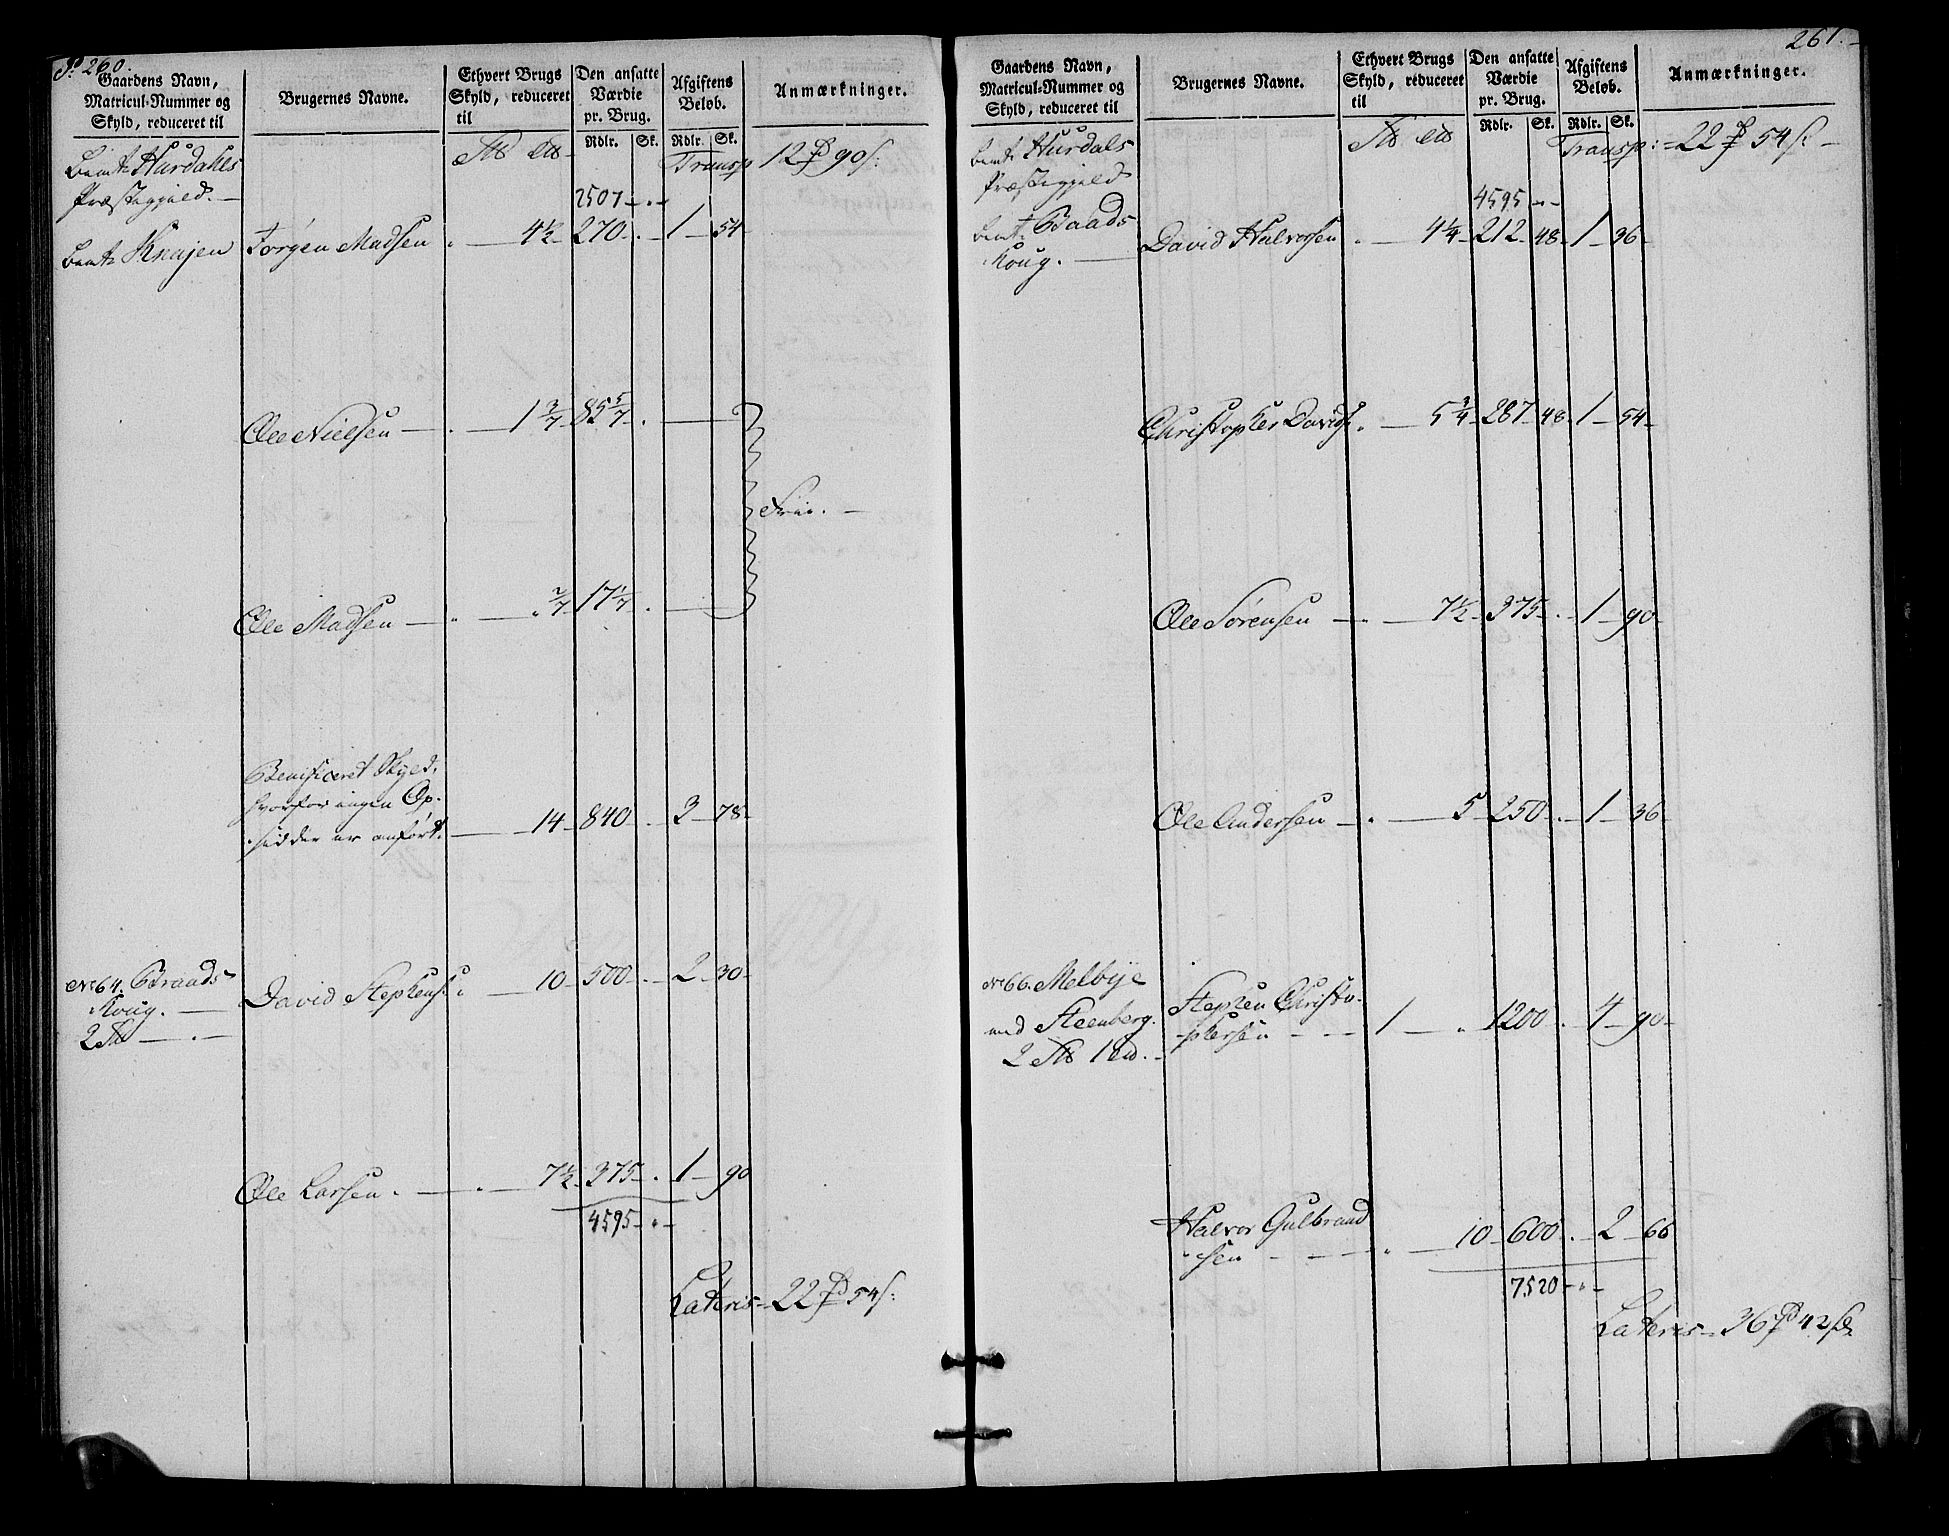 P. 260.
Gaardens Navn,
Matricul-Nummer og
Skyld, reduceret til
Brugernes Navne.
Ethvert Brugs
Skyld, reduceret
til
Den ansatte
Værdie
pr. Brug.
Rdlr. Sk.
Afgiftens
Beløb.
Rdlr. Sk.
Anmærkninger.
Hurdahls
Præstegjeld.
2507
Transp 12 90
Knajen Jørgen Madsen 4½ 270 1 54
Ole Nielsen 1 3/7 85 5/7
Frie.
Ole Madsen 2/7 17 1/7
Benificeret Skyld,
hvorfor ingen Op-
sidder er anført. 14 840 3 78
No 64. Braads
Koug.
2
David Stephens: 10 500 2 30
Ole Larsen 7½ 375 1 90
4595
Lateris 22 54
261.
Gaardens Navn,
Matricul-Nummer og
Skyld, reduceret til
Brugernes Navne.
Ethvert Brugs
Skyld, reduceret
til
Den ansatte
Værdie
pr. Brug.
Rdlr. Sk.
Afgiftens
Beløb.
Rdlr. Sk.
Anmærkninger.
Hurdals
Præstegjeld
4595
Transp: 22 54
Baads
Koug.
David Halvorsen 4¼ 212 48 1 36
Christopher Davids: 5¾ 287 48 1 54
Ole Sörensen 7½ 375 1 90
Ole Andersen 5 250 1 36
No 66. Melbye
med Steenberg.
2 1
Stephen Christo-
phersen 1 1200 4 90
Halvor Gulbrand
sen 10 600 2 66
7520
Lateris 36 42